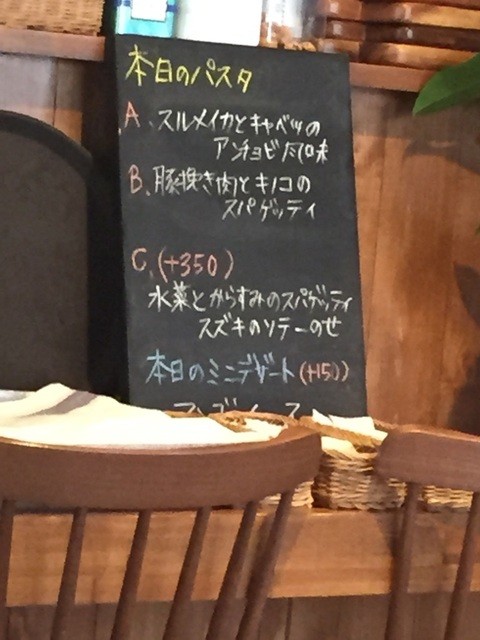 本日のパスタ
A、スルメイカとキャベツの
アンチョビ風味
B、豚挽き肉とキノコの
スパゲッティ
C、(+350)
水菜とからすみのスパゲッティ
スズキのソテーのせ
本日のミニデザート(+150)